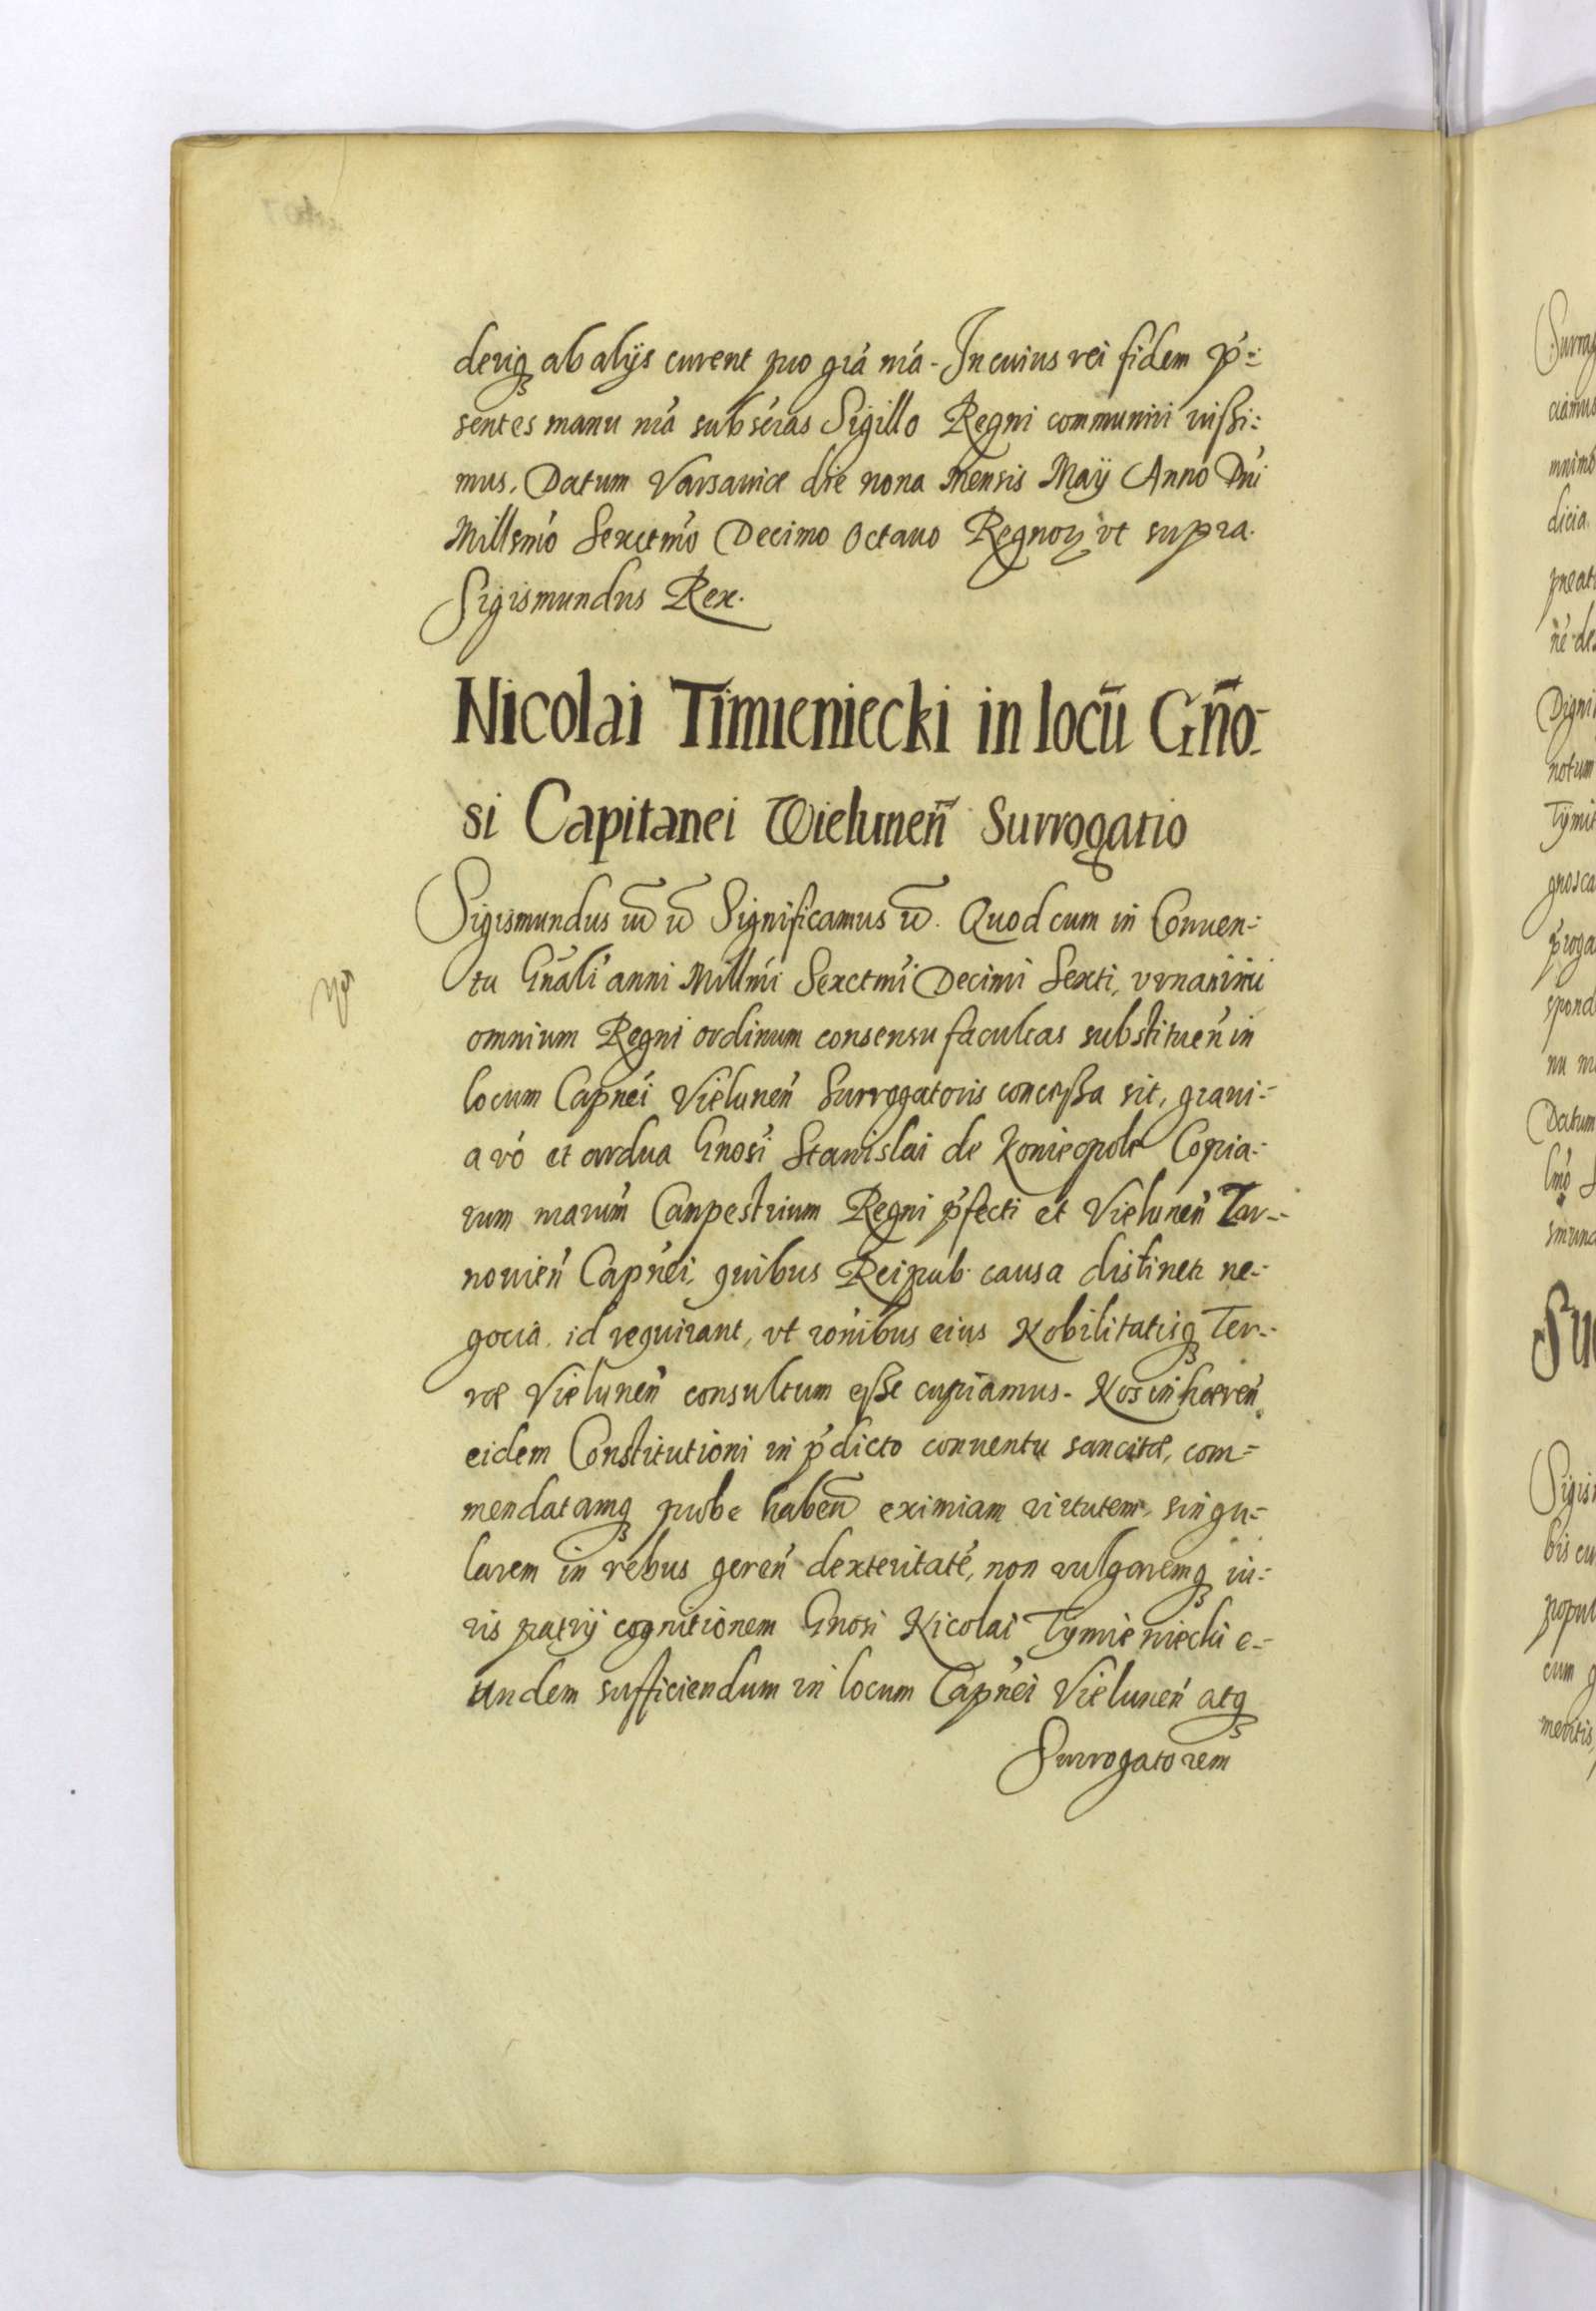 deriq₃ ab alijs curent pro gra̅ nra̅. In cuius rei fidem p̅=
sentes manu nra̅ subscras̅ Sigillo Regni communiri iussi=
mus. Datum Varsaviæ die nona mensis Maij Anno Dni̅
Millsmo̅ Sexctmo̅ Decimo Octauo Regnoꝝ vt supra.
Sigismundus Rex.
Nicolai Timieniecki in locū Gn̅o-
si Capitanei Wielunen̅ Surrogatio
Sigismundus Significamus Quod cum in Conuen=
tu Gnali̅ anni Millmi̅ Sexctmi̅ Decimi Sexti, vnanimi
omnium Regni ordinum consensu facultas substituen̅ in
locum Capnei̅ Vielunen̅ Surrogatoris concessa sit, graui=
a vo̅ et ardua Gnosi̅ Stanislai de Koniecpole Copia=
rum nrarum̅ Campestrium Regni p̅fecti et Vielunen̅ Tar=
nouien̅ Capnei̅, quibus Reipub. causa distinetr ne=
gocia, id requirant, vt ronibus̅ eius Nobilitatisq₃ Ter=
ræ Vielunen̅ consultum esse cupiamus. Nos inhæren̅
eidem Constitutioni in p̅dicto conuentu sancitæ, com=
mendatamq₃ probe haben̅ eximiam virtutem, singu=
larem in rebus geren̅ dexteritate̅, non vulgaremq₃ iu=
ris patrij cognitionem Gnosi Nicolai Tymieniecki e=
undem sufficiendum in locum Capnei̅ Vielunen̅ atq₃
Surrogatorem